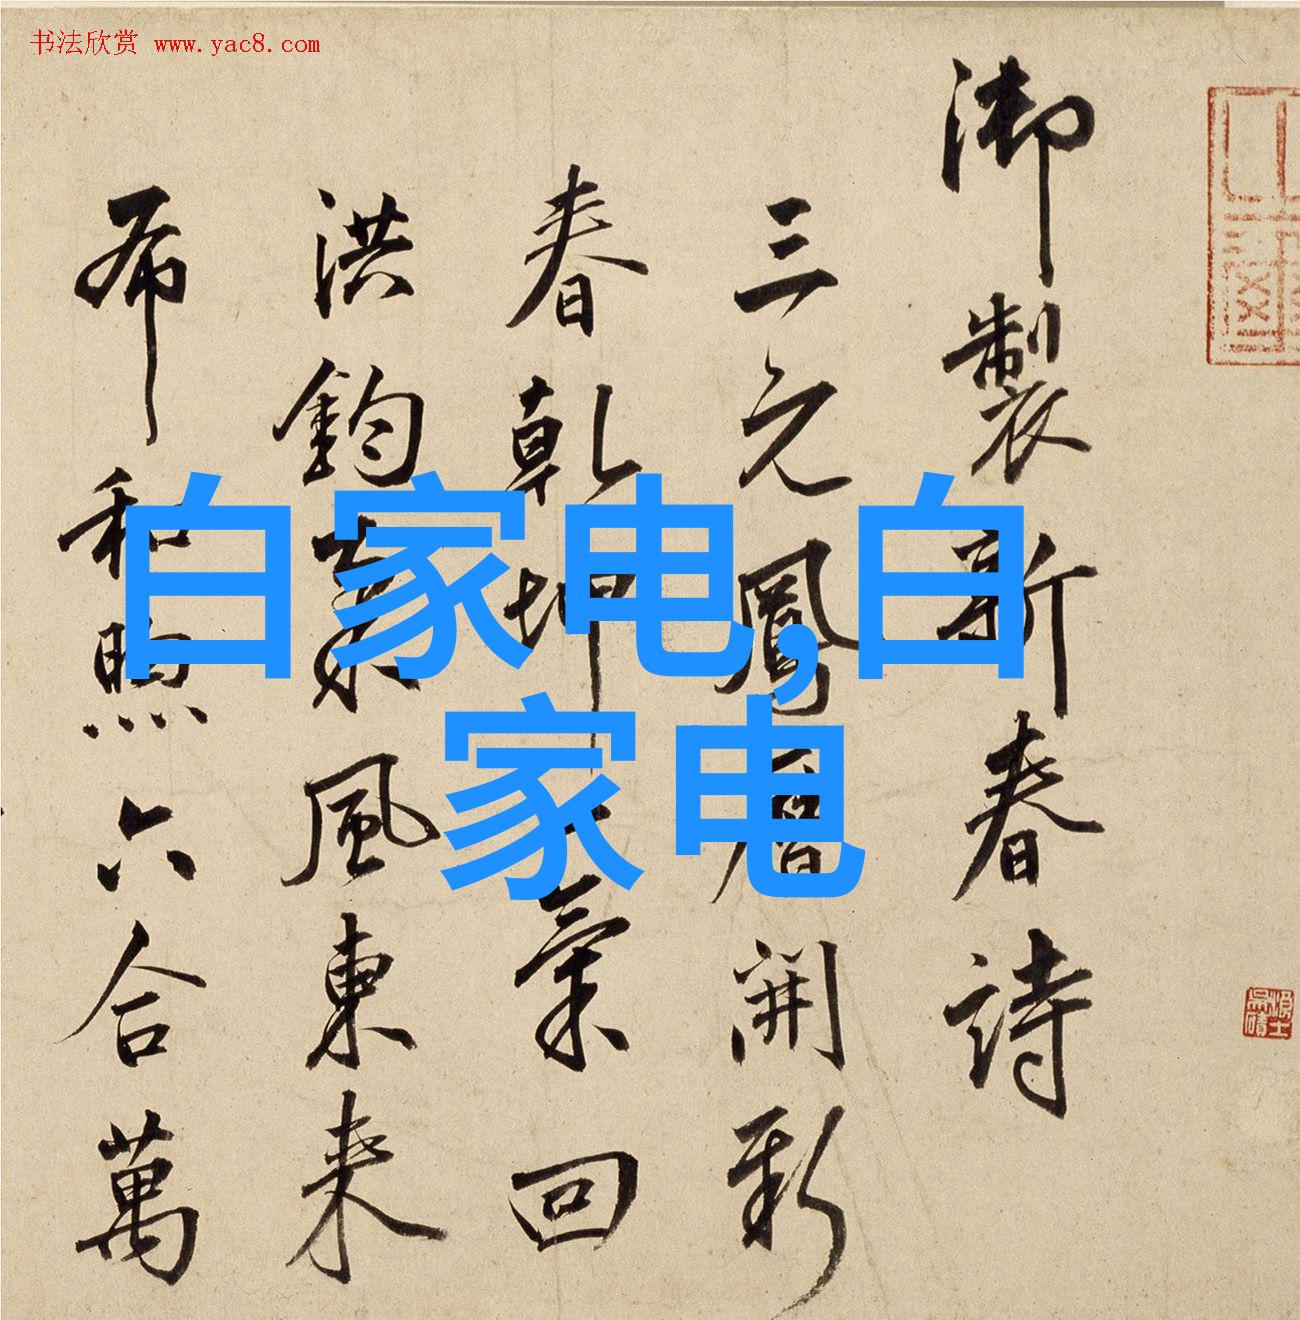 书法欣赏 www.yac8.com
御製新春詩
三元鳳曆開新
春乾坤一氣回
洪鈞風東来
布和煦六合萬
白家电,白
家电